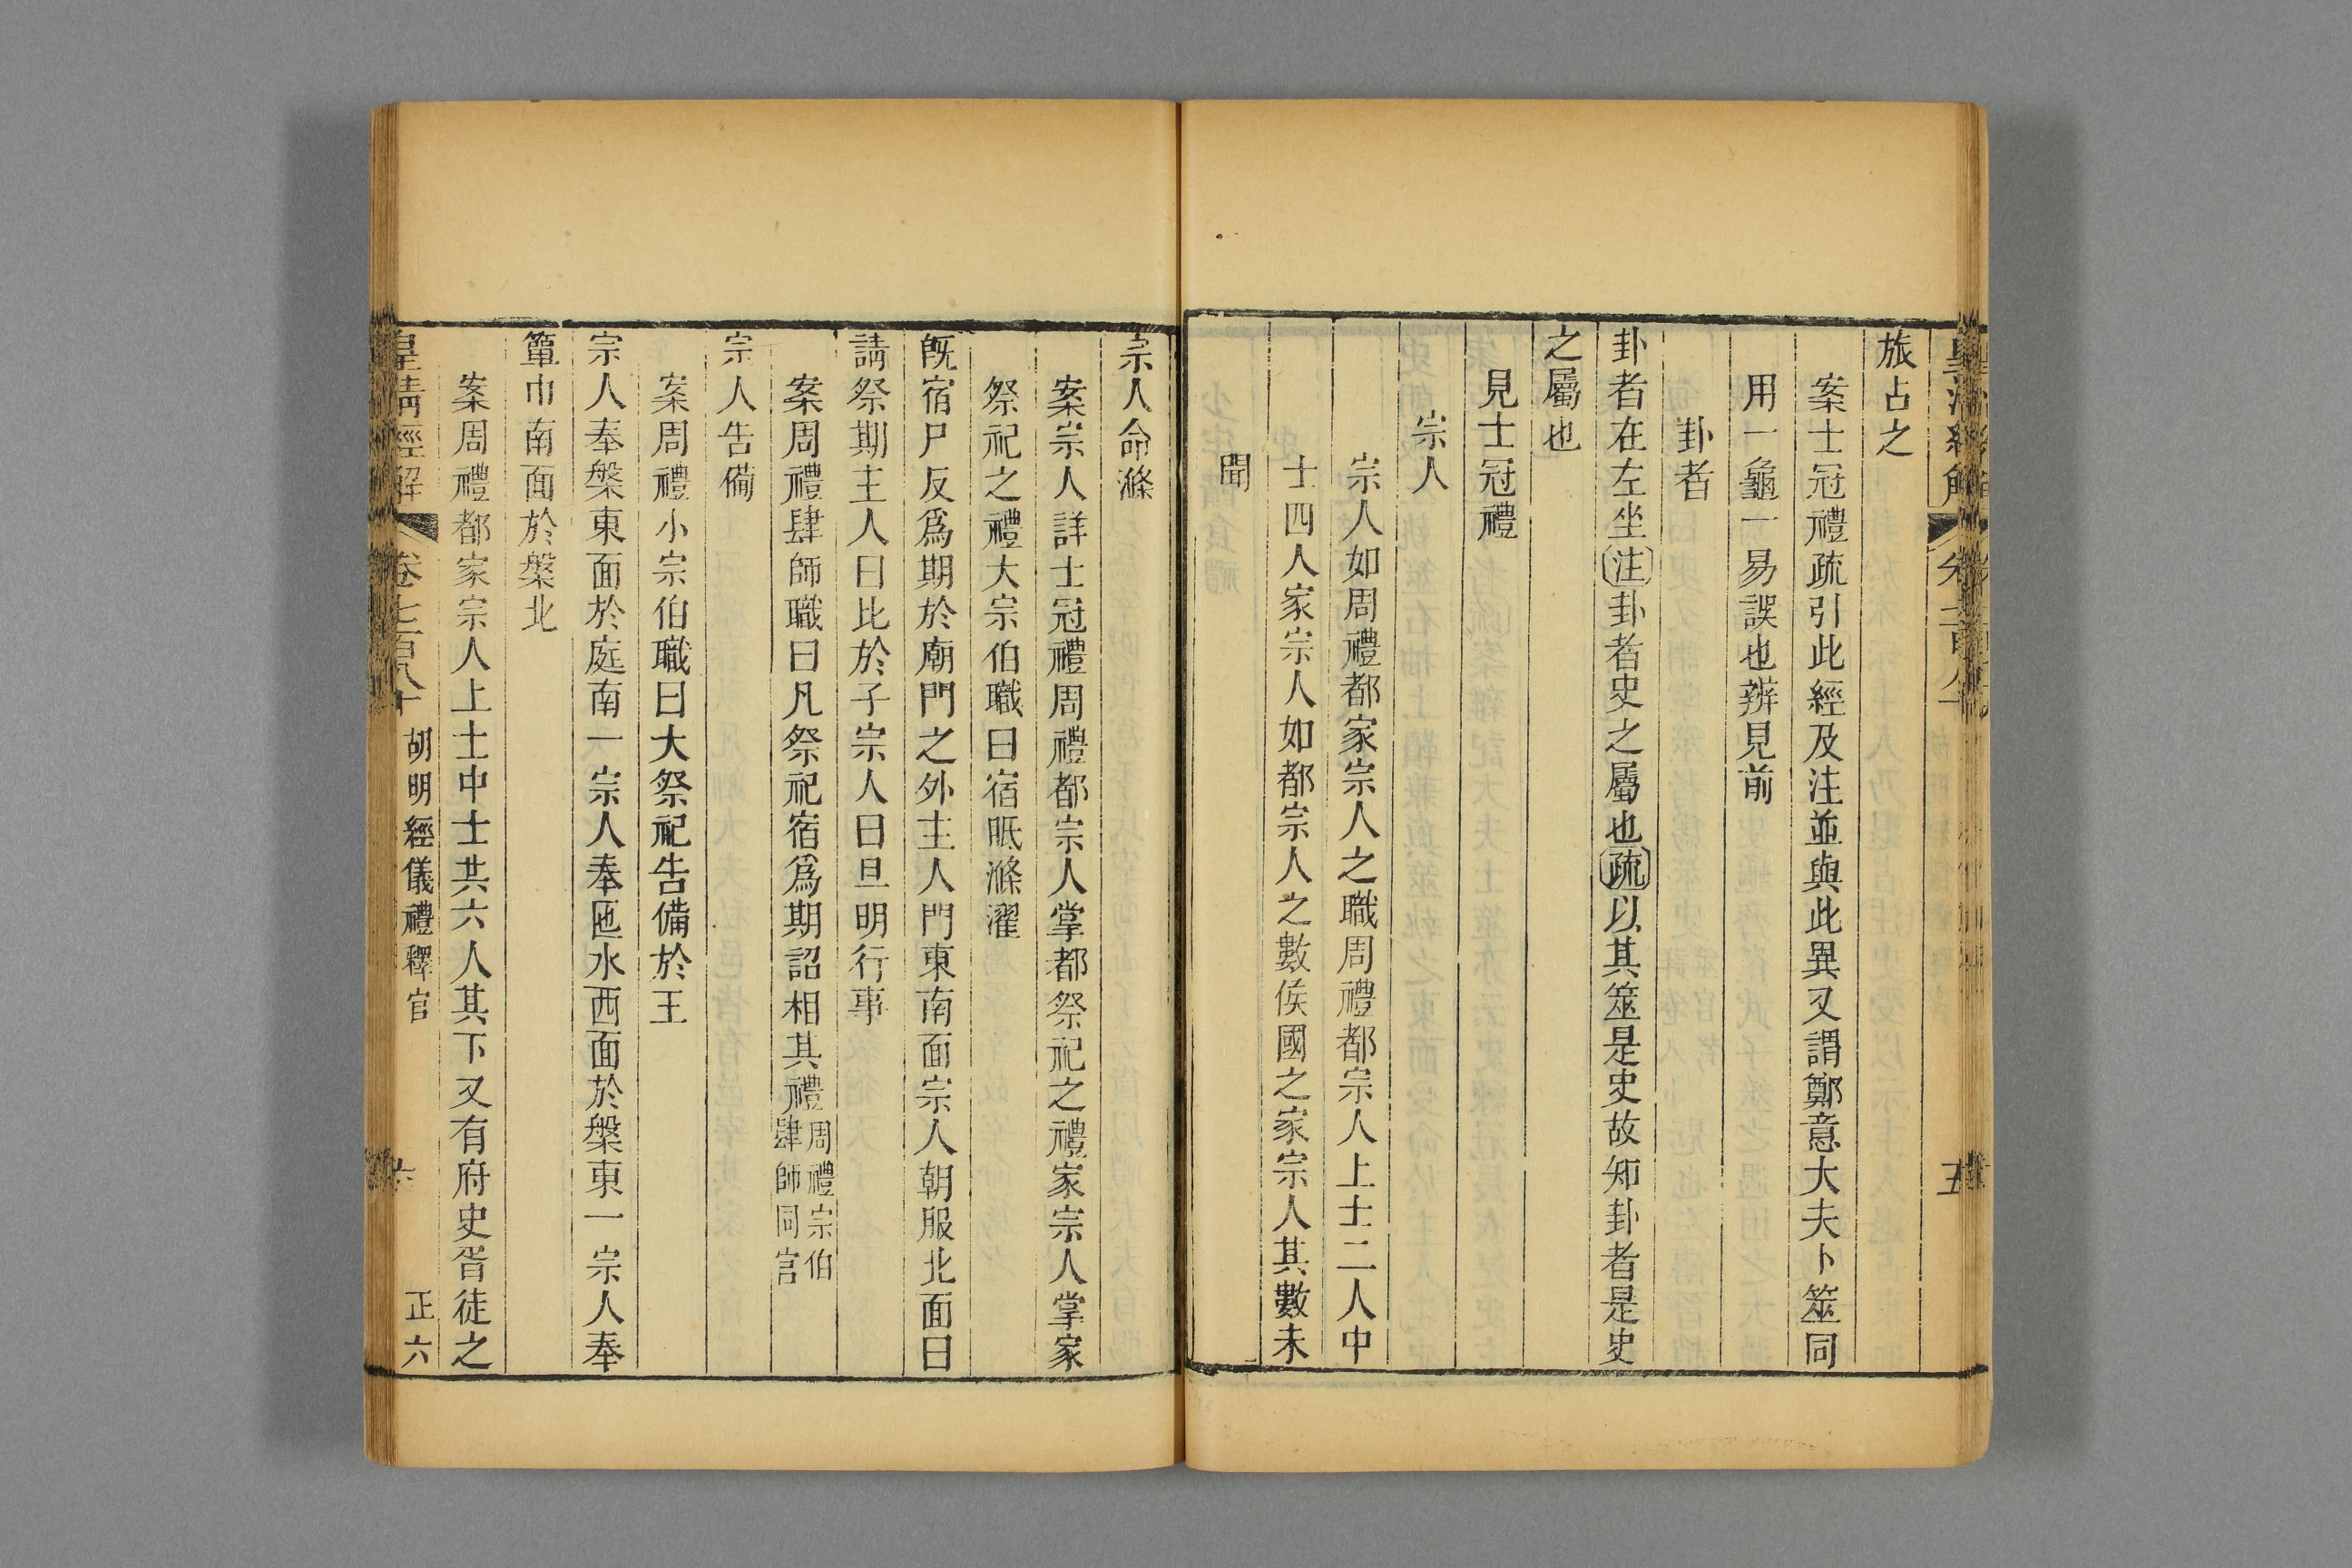 旅占之
案士冠禮疏引此經及注並與此異又謂鄭意大夫卜筮同
用一龜一易誤也辨見前
卦者
卦者在左坐注卦者史之屬也疏以其筮是史故知卦者是史
之屬也
見士冠禮
宗人
宗人如周禮都家宗人之職周禮都宗人上士二人中
士四人家宗人如都宗人之數侯國之家宗人其數未
聞
宗人命滌
案宗人詳士冠禮周禮都宗人掌都祭祀之禮家宗人掌家
祭祀之禮大宗伯職曰宿眡滌濯
旣宿尸反爲期於廟門之外主人門東南面宗人朝服北面曰
請祭期主人曰比於子宗人曰旦明行事
案周禮肆師職曰凡祭祀宿爲期詔相其禮周禮宗伯肆師同官
宗人告備
案周禮小宗伯職曰大祭祀告備於王
宗人奉槃東面於庭南一宗人奉匜水西面於槃東一宗人奉
簞巾南面於槃北
案周禮都家宗人上士中士共六人其下又有府史胥徒之
皇清經解 卷七百八十 胡明經儀禮釋官 六 正六